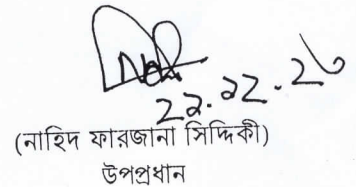 ২২.১২.২০
(নাহিদ ফারজানা সিদ্দিকী)
উপপ্রধান